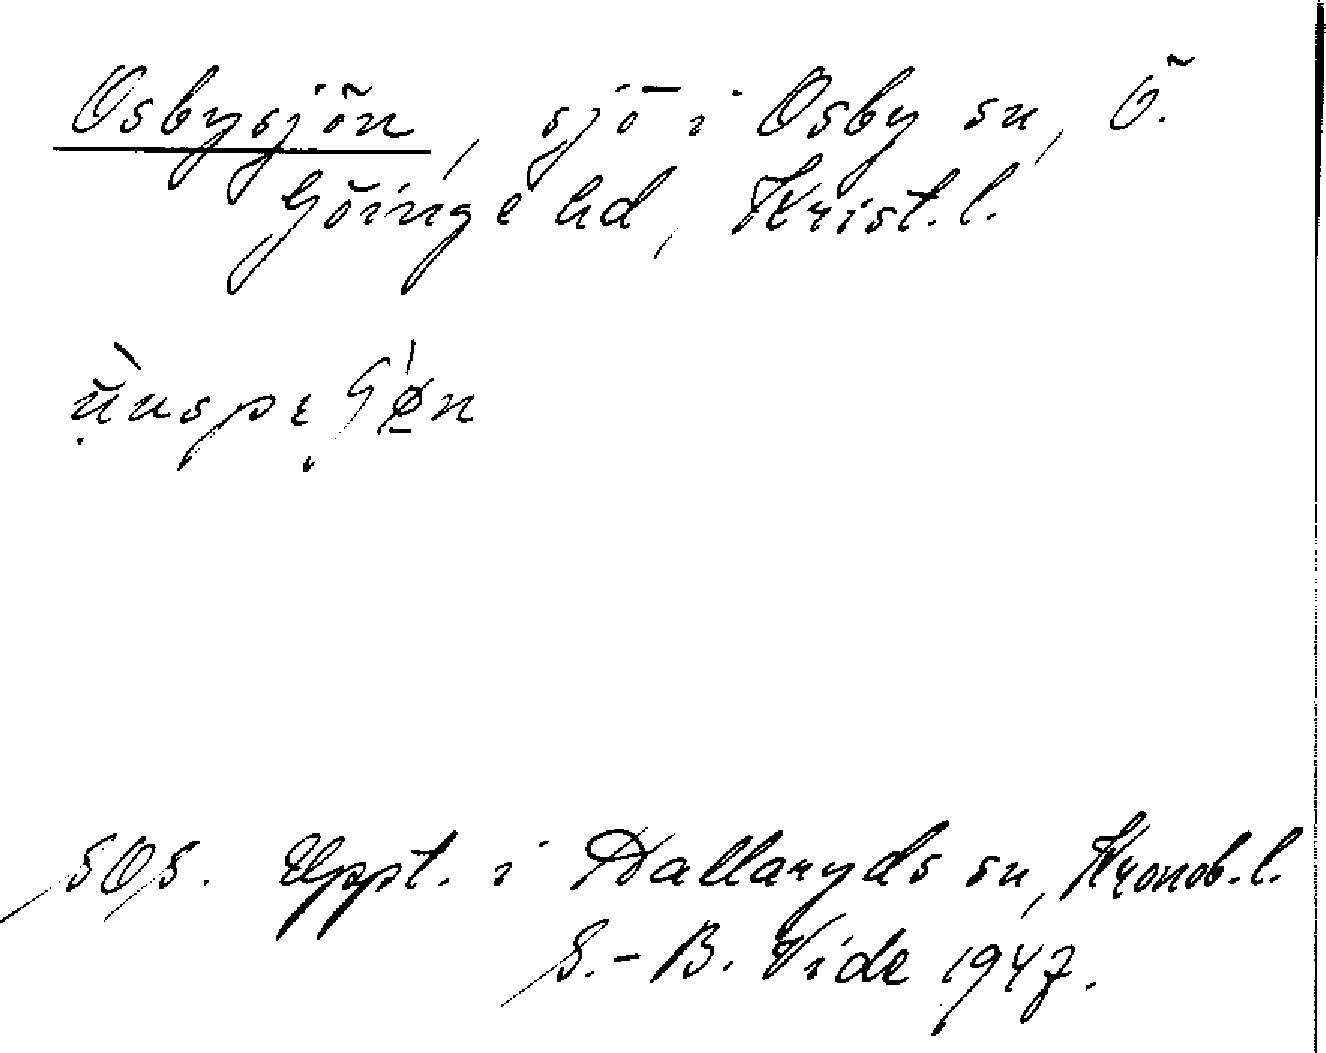 Osbysjön, sjö i Osby sn, Ö.
Göinge hd, Krist. l.
SOS. Uppt. i Hallaryds sn, Kronob. l.
S.-B. Vide 1947.